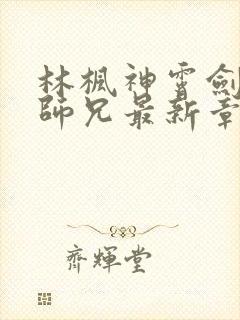 林楓神霄劍
師兄最新章
齊輝堂